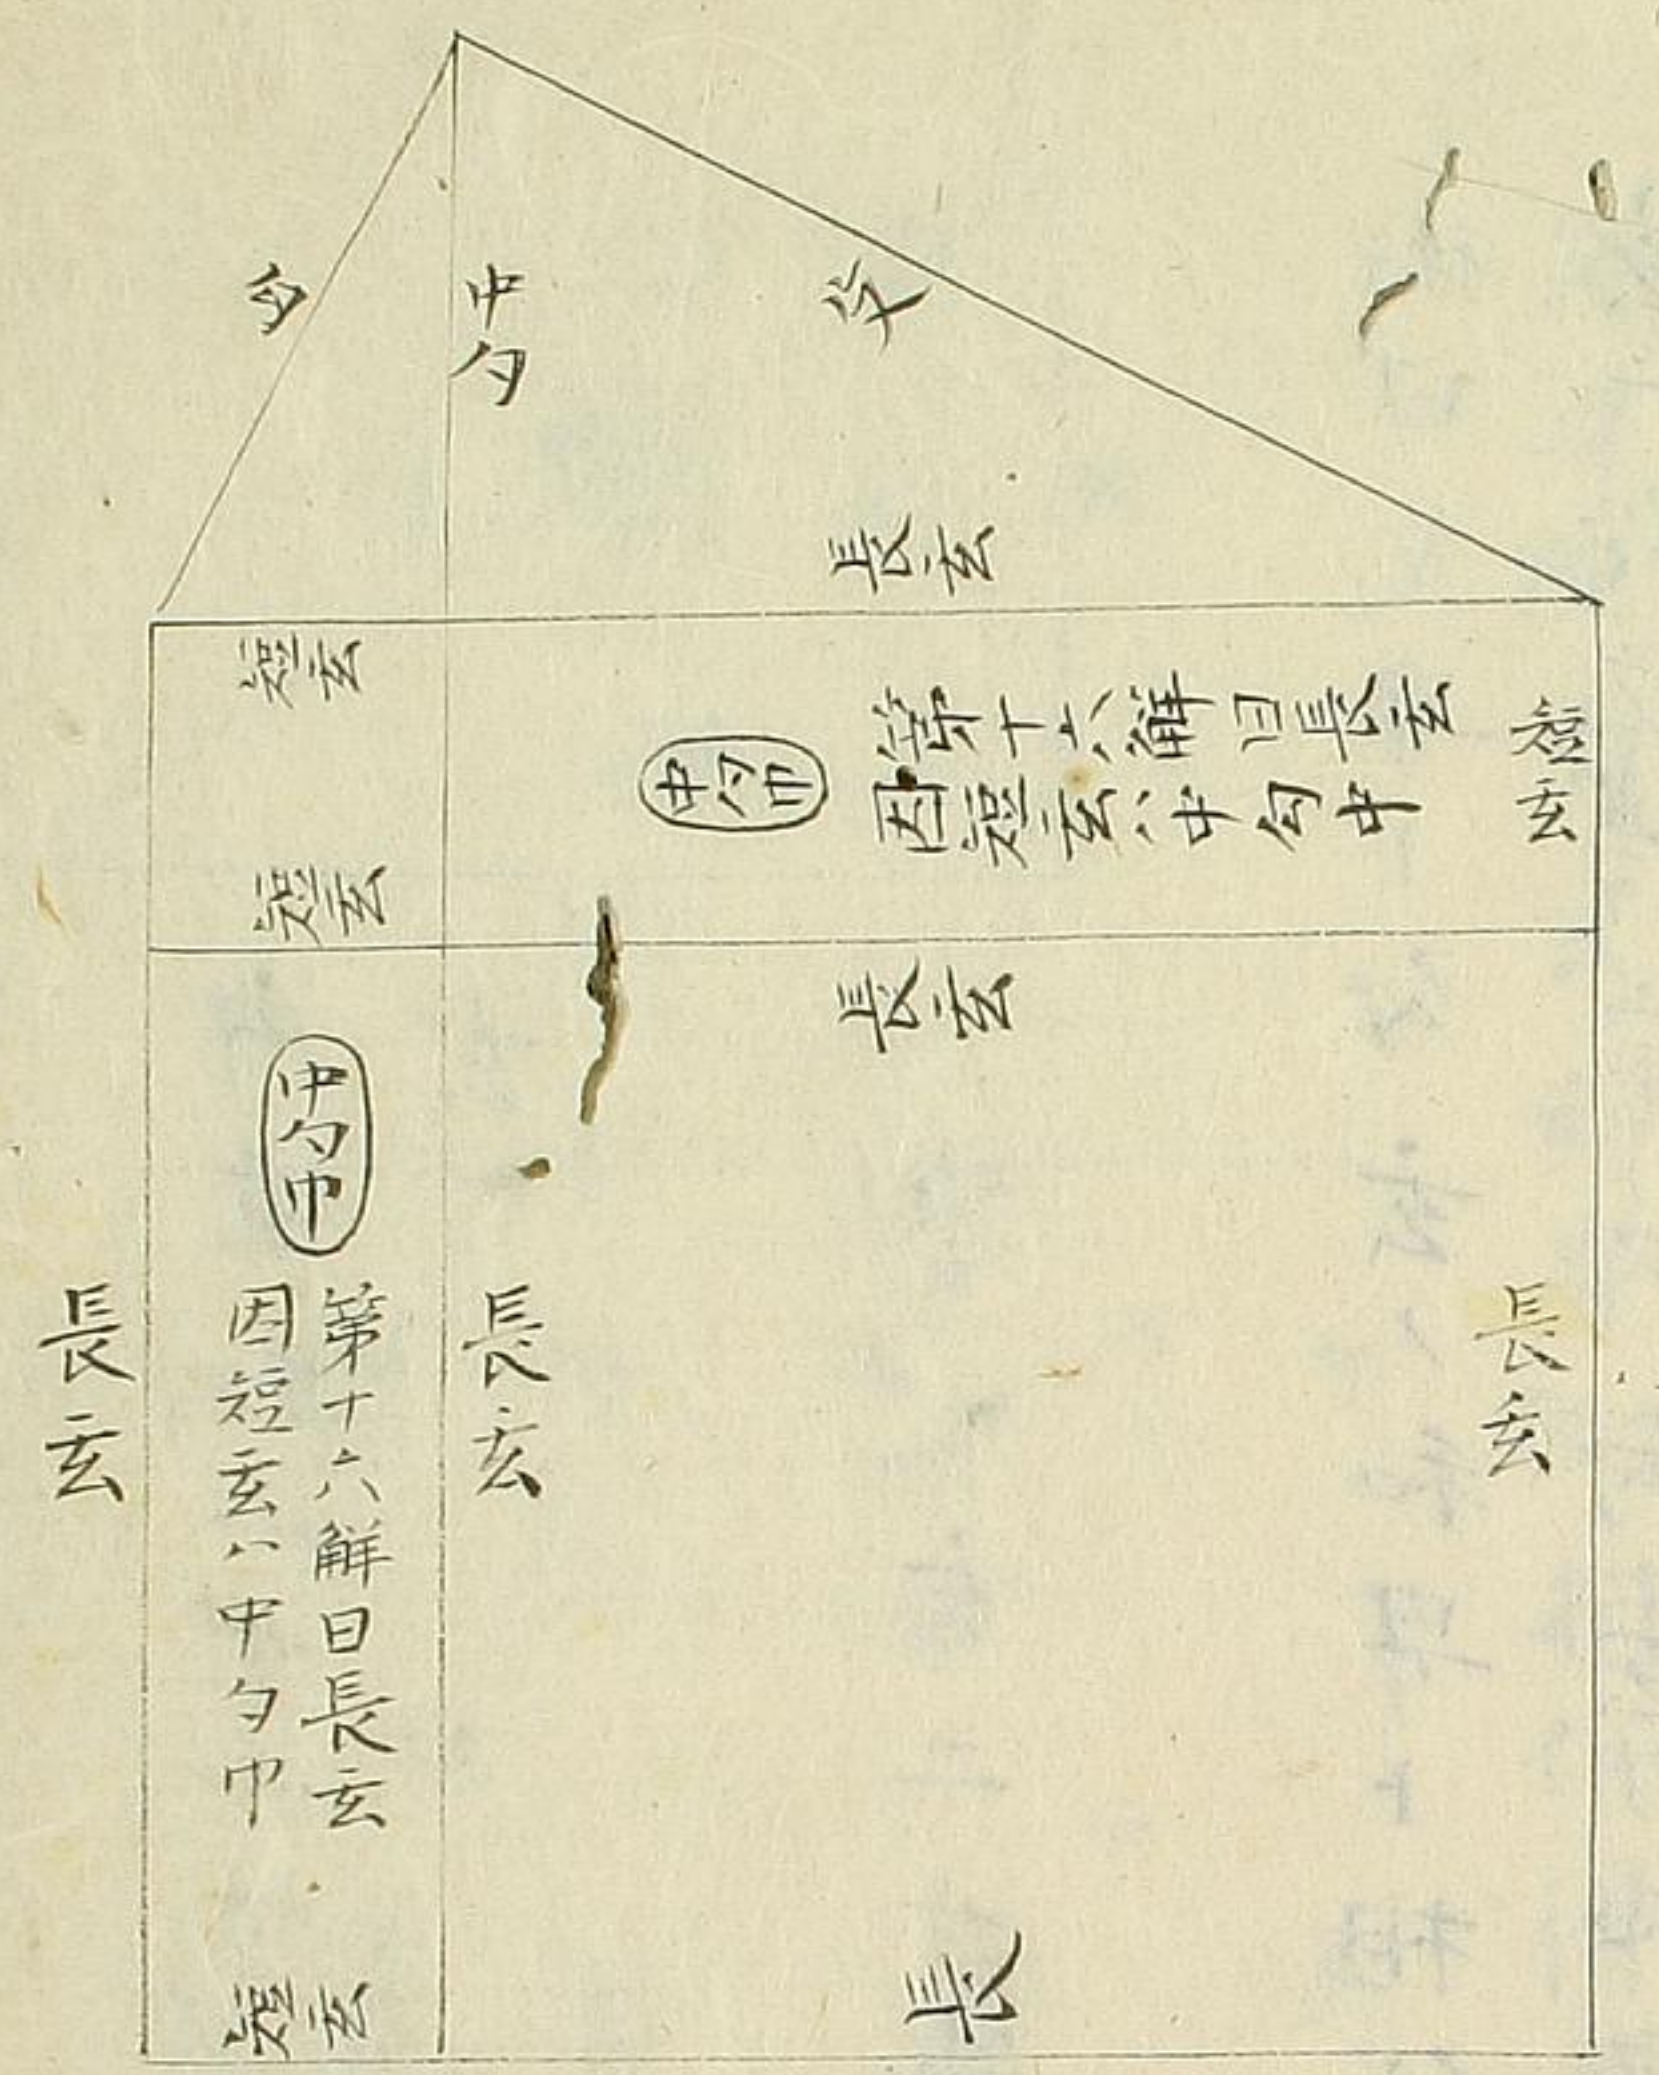 勾
中勾
長玄
短玄
中勾巾
第十六解曰長玄
因短玄ハ中勾巾
短玄
短玄
長玄
中勾巾
第十六解曰長玄
因短玄ハ中勾巾
長玄
長玄
長玄
短玄
長